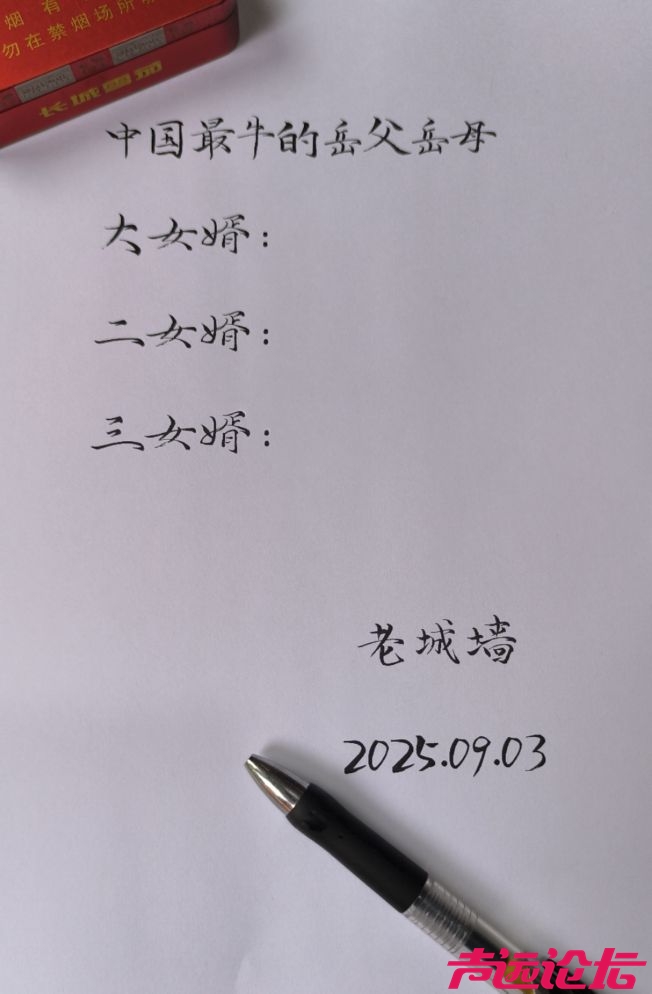 烟有
勿在禁烟场所吸
长城雪茄
中国最牛的岳父岳母
大女婿：
二女婿：
三女婿：
老城墙
2025.09.03
声远论坛